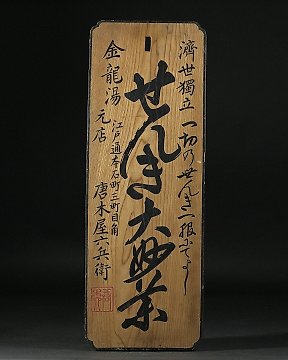 濟世獨立 一切のせんき一服にてよし
せんき大妙薬
金龍湯
元店
江戸通本石町三町目角
唐木屋六兵衛